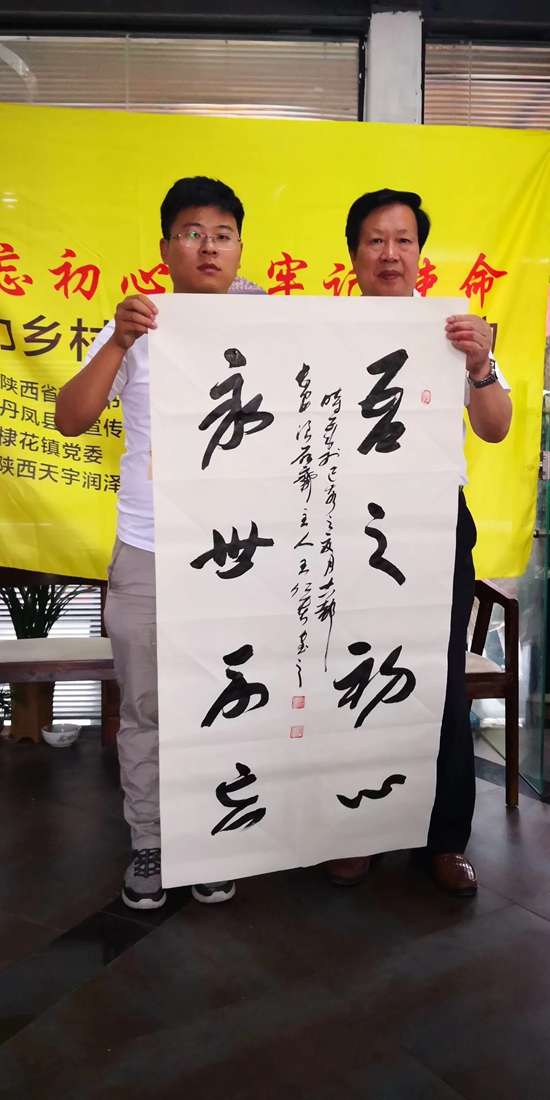 忘初心 牢记使命
乡村
陕西省 书
丹凤县 宣传
棣花镇党委
陕西天宇润泽
吾之初心
永世不忘
时在己亥之夏月古都
长安 石斋主人王仁 书之